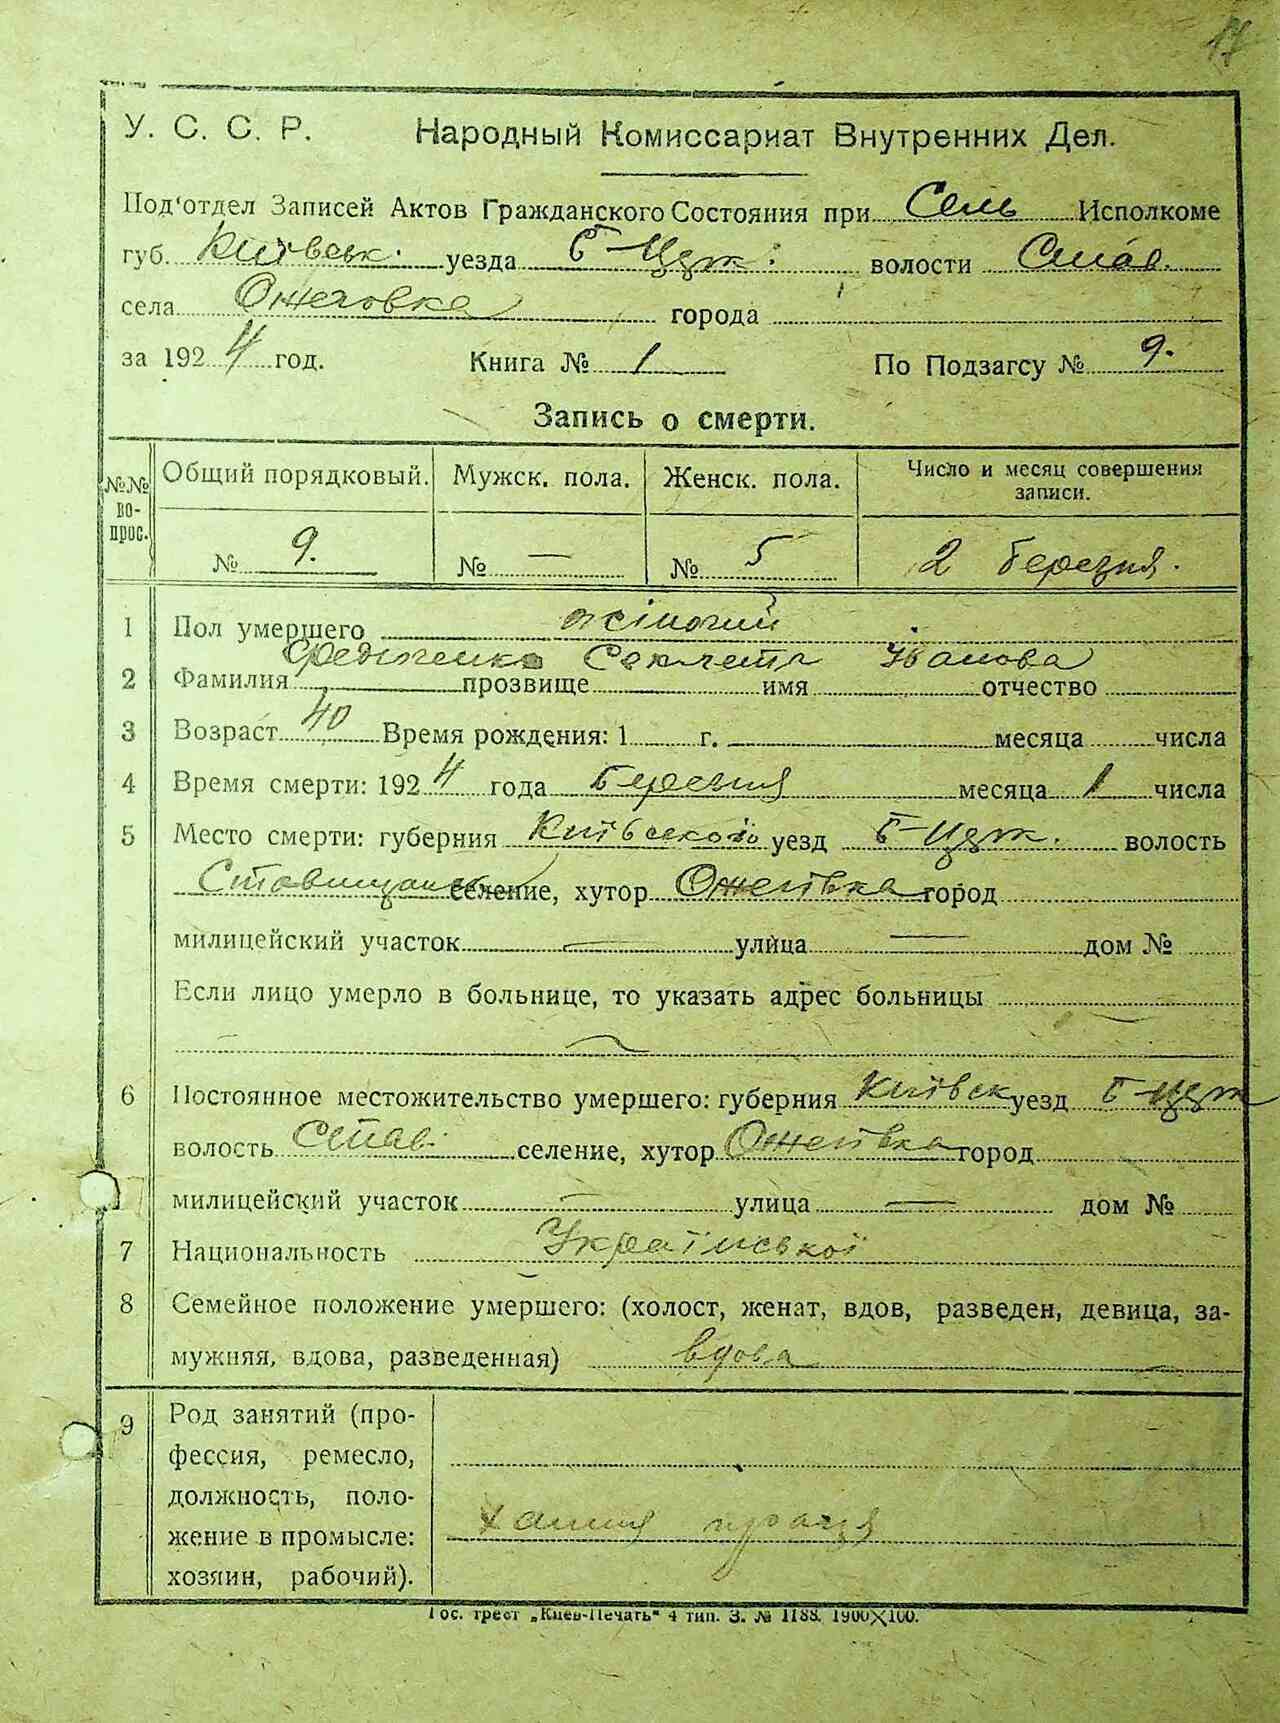 17
У. С. С. Р. Народный Комиссариат Внутренних Дел.
Под'отдел Записей Актов Гражданского Состояния при Сель Исполкоме
губ. Київськ. уезда Б-Цдк. волости Став.
села Ожеговка города
за 1924 год. Книга № 1 По Подзагсу № 9.
Запись о смерти.
№№ во- прос. Общий порядковый. Мужск. пола. Женск. пола. Число и месяц совершения записи.
№ 9. № — № 5 2 березня.
1 Пол умершего жіночий
2 Фамилия прозвище Секлета имя Іванова отчество
3 Возраст 40 Время рождения: 1 г. месяца числа
4 Время смерти: 1924 года березня месяца 1 числа
5 Место смерти: губерния Київської уезд Б-Цдк. волость
Ставищанськ селение, хутор Ожегівка город
милицейский участок — улица — дом №
Если лицо умерло в больнице, то указать адрес больницы
6 Постоянное местожительство умершего: губерния Київськ уезд Б-Цдк
волость Став. селение, хутор Ожегівка город
милицейский участок — улица — дом №
7 Национальность Української
8 Семейное положение умершего: (холост, женат, вдов, разведен, девица, за-
мужняя, вдова, разведенная) вдова
9 Род занятий (про-
фессия, ремесло,
должность, поло-
жение в промысле:
хозяин, рабочий).
хатня праця
Гос. трест „Киев-Печать" 4 тип. З. № 1188. 1900X100.